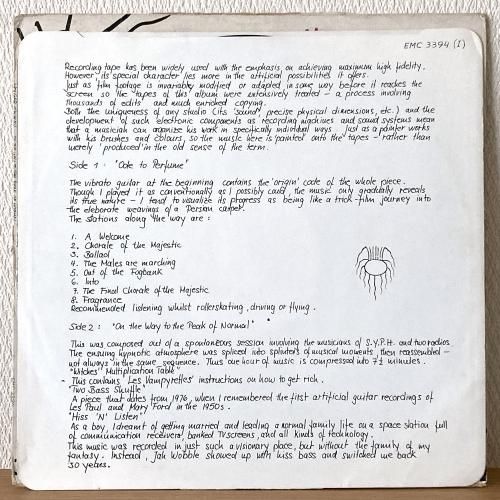 EMC 3394 (I)
Recording tape has been widely used with the emphasis on achieving maximum high fidelity.
However, its special character lies more in the artificial possibilities it offers.
Just as film footage is invariably modified or adapted in some way before it reaches the
screen so the tapes of this album were extensively treated – a process involving
thousands of edits and much enriched copying.
Both the uniqueness of any studio (its 'sound', precise physical dimensions, etc.) and the
development of such electronic components as recording machines and sound systems mean
that a musician can organize his work in specifically individual ways. Just as a painter works
with his brushes and colours, so the music is 'painted' onto the tapes – rather than
merely 'produced' in the old sense of the term.
Side 1: "Ode to Perfume"
The vibrato guitar at the beginning contains the 'origin' code of the whole piece.
Though I played it as conventionally as I possibly could, the music only gradually reveals
its true nature – I tend to visualize its progress as being like a trick-film journey into
the eleborate weavings of a Persian carpet.
The stations along the way are:
1. A Welcome
2. Chorale of the Majestic
3. Ballad
4. The Males are marching
5. Out of the Fogbank
6. Into
7. The Final Chorale of the Majestic
8. Fragrance
Recommended listening whilst rollerskating, driving or flying.
Side 2: "On the Way to the Peak of Normal"
This was composed out of a spontaneous session involving the musicians of S.Y.P.H. and two radios.
The ensuing hypnotic atmosphere was spliced into splinters of musical moments, then reassembled –
not always in the same sequence. Thus one hour of music is compressed into 7½ minutes.
"Witches' Multiplication Table"
This contains 'Les Vampyrelles' instructions on how to get rich.
"Two Bass Shuffle"
A piece that dates from 1976, when I remembered the first artificial guitar recordings of
Les Paul and Mary Ford in the 1950s.
"Hiss 'N' Listen"
As a boy, I dreamt of getting married and leading a normal family life on a space station full
of communication receivers, banked TV screens, and all kinds of technology.
This music was recorded in just such a visionary place, but without the family of my
fantasy. Instead, Jah Wobble showed up with his bass and switched me back
30 years.